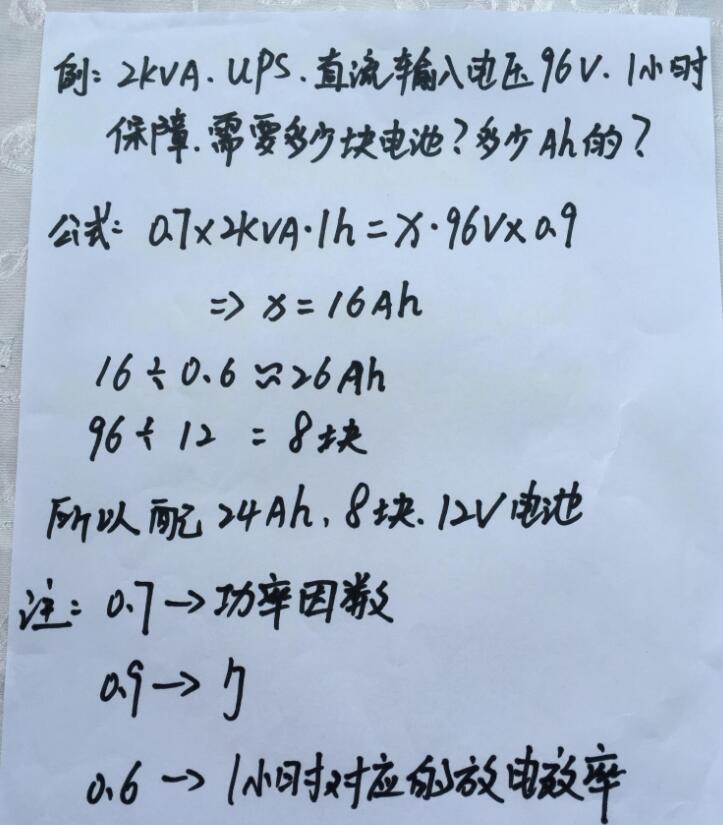 例: 2KVA. UPS. 直流输入电压96V. 1小时
保障. 需要多少块电池? 多少Ah的?
公式: 0.7×2KVA·1h=x·96V×0.9
=> x=16Ah
16÷0.6≈26Ah
96÷12=8块
所以配24Ah, 8块. 12V电池
注: 0.7→功率因数
0.9→η
0.6→1小时对应的放电效率